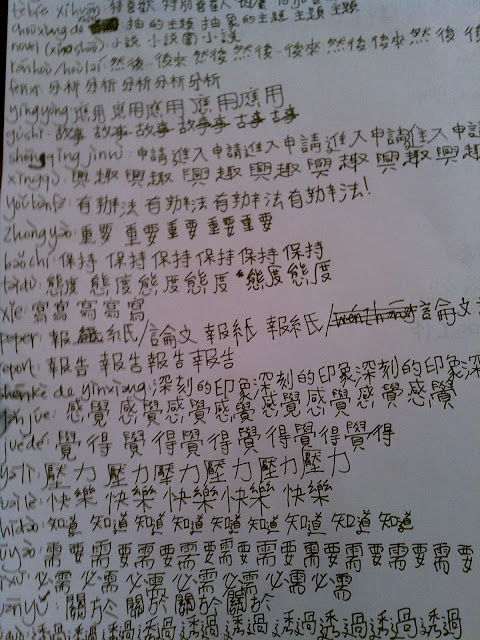 特喜歡 特別喜歡
抽的主題 抽象的主題 主題 主題
novel (xiǎoshuō): 小說 小說 小說
然後 後來 然後 然後 後來 然後
分析 分析 分析 分析 分析
yìngyòng: 應用 應用 應用 應用 應用
gùshì: 故事 故事 故事 故事事 古事 古事
shēnqǐng jìnrù: 申請 進入 申請進入申請進入申請進入申請
xìngqù: 興趣 興趣 興趣 興趣 興趣 興趣
yǒubànfǎ: 有辦法 有辦法 有辦法有辦法!
zhòngyào: 重要 重要 重要 重要 重要
bǎochí: 保持 保持 保持 保持 保持 保持
tàidù: 態度 態度 態度 態度 態度 態度
xiě: 寫 寫 寫 寫 寫
paper: 報紙/論文 報紙 報紙/論文
report: 報告 報告 報告 報告
shēnkè de yìnxiàng: 深刻的印象 深刻的印象 深刻
感覺 感覺 感覺 感覺 感覺 感覺 感覺
juéde: 覺得 覺得 覺得 覺得 覺得 覺得
yālì: 壓力 壓力 壓力 壓力 壓力 壓力
快樂 快樂 快樂 快樂 快樂
知道 知道 知道 知道 知道 知道 知道
需要 需要 需要 需要 需要 需要 需要 需要 需要
必需 必需 必需 必需 必需 必需
關於 關於 關於 關於
透過 透過 透過 透過 透過 透過 透過